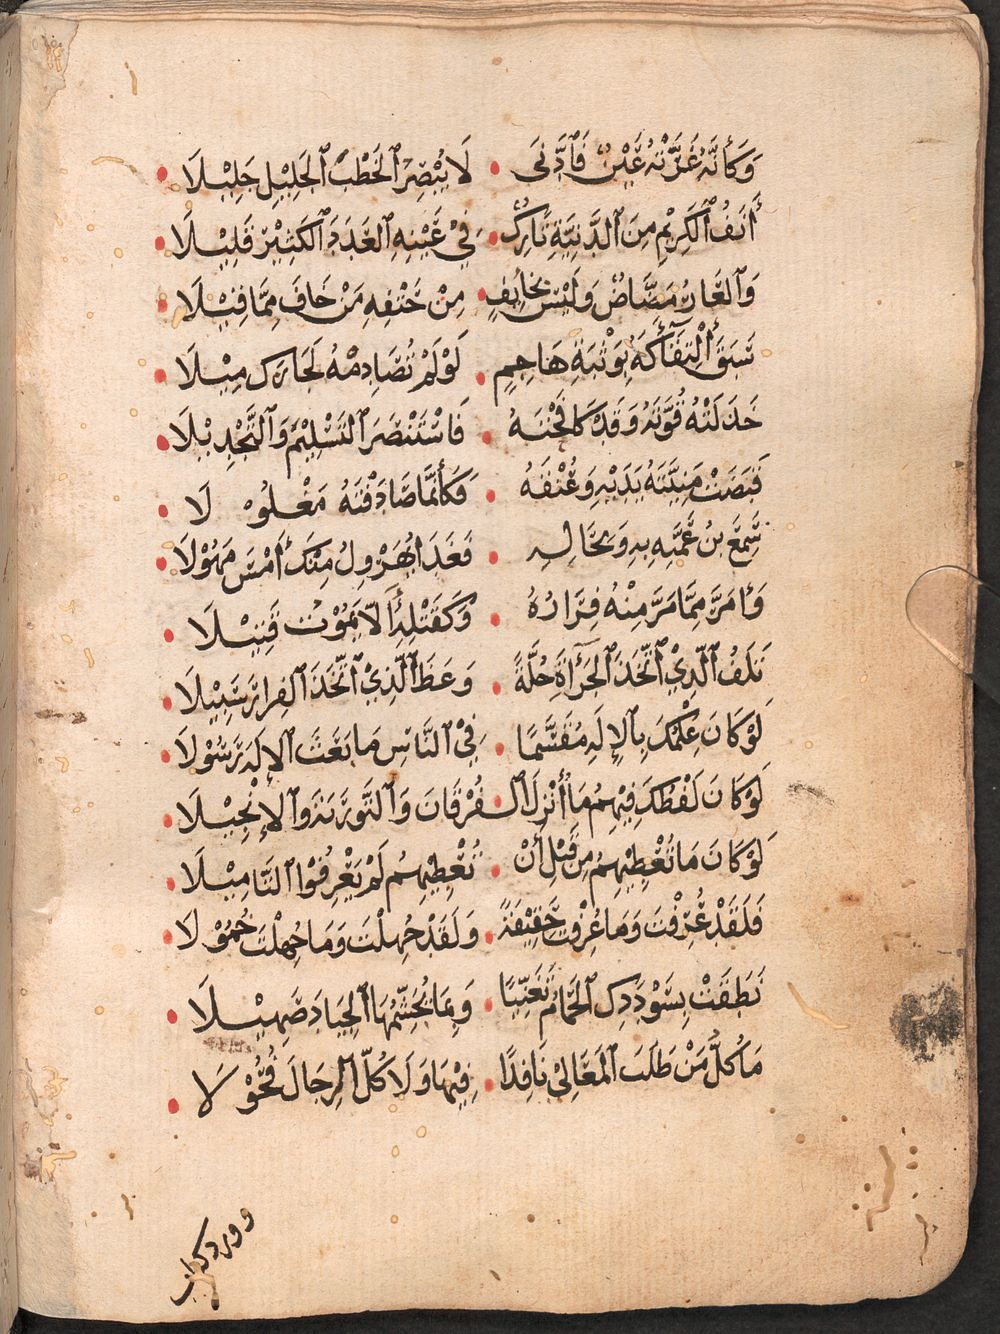 وَكَأَنَّهُ غَرَّتْهُ عَيْنٌ فَادَّنَى • لَا يُبْصِرُ الْخَطْبَ الْجَلِيْلَ جَلِيْلَا •
أَنَفُ الْكَرِيْمِ مِنَ الدَّنِيَّةِ تَارِكٌ • فِيْ عَيْنِهِ الْعَدَدَ الْكَثِيْرَ قَلِيْلَا •
وَالْعَارُ مَضَّاضٌ وَلَيْسَ بِخَائِفٍ • مِنْ حَتْفِهِ مَنْ خَافَ مِمَّا قِيْلَا •
سَبَقَ الْتِقَاءَكَهُ بِوَثْبَةِ هَاجِمٍ • لَوْ لَمْ تُصَادِمْهُ لَجَازَكَ مِيْلَا •
خَذَلَتْهُ قُوَّتُهُ وَقَدْ كَافَحْتَهُ • فَاسْتَنْصَرَ التَّسْلِيْمَ وَالتَّجْدِيْلَا •
قَبَضَتْ مَنِيَّتُهُ يَدَيْهِ وَعُنْقَهُ • فَكَأَنَّمَا صَادَفْتَهُ مَغْلُوْلَا •
سَمِعَ بْنُ عَمَّتِهِ بِهِ وَبِحَالِهِ • فَغَدَا يُهَرْوِلُ مِنْكَ أَمْسِ مَهُوْلَا •
وَأَمَرُّ مِمَّا مَرَّ مِنْهُ فِرَارُهُ • وَكَقَتْلِهِ أَلَّا يَمُوْتَ قَتِيْلَا •
تَلَفُ الَّذِيْ اتَّخَذَ الْجَرَاءَةَ خُلَّةً • وَعَظَ الَّذِيْ اتَّخَذَ الْفِرَارَ سَبِيْلَا •
لَوْ كَانَ عِلْمُكَ بِالْإِلَهِ مُقَسَّمًا • فِي النَّاسِ مَا بَعَثَ الْإِلَهُ رَسُوْلَا •
لَوْ كَانَ لَفْظُكَ فِيْهِمُ مَا أَنْزَلَ الْـ • ـفُرْقَانَ وَالتَّوْرَيةَ وَالْإِنْجِيْلَا •
لَوْ كَانَ مَا تُعْطِيْهِمُ مِنْ قَبْلِ أَنْ • تُعْطِيْهِمُ لَمْ يَعْرِفُوْا التَّامِيْلَا •
فَلَقَدْ عُرِفْتَ وَمَا عُرِفْتَ حَقِيْقَةً • وَلَقَدْ جُهِلْتَ وَمَا جُهِلْتَ خُمُوْلَا •
نَطَقَتْ بِسُوْدَدِكَ الْحَمَامُ تَغَنِّيًا • وَبِمَا تُجَشِّمُهَا الْجِيَادُ صَهِيْلَا •
مَا كُلُّ مَنْ طَلَبَ الْمَعَالِيْ نَافِذًا • فِيْهَا وَلَا كُلُّ الرِّجَالِ فُحُوْلَا •
وورد كتاب